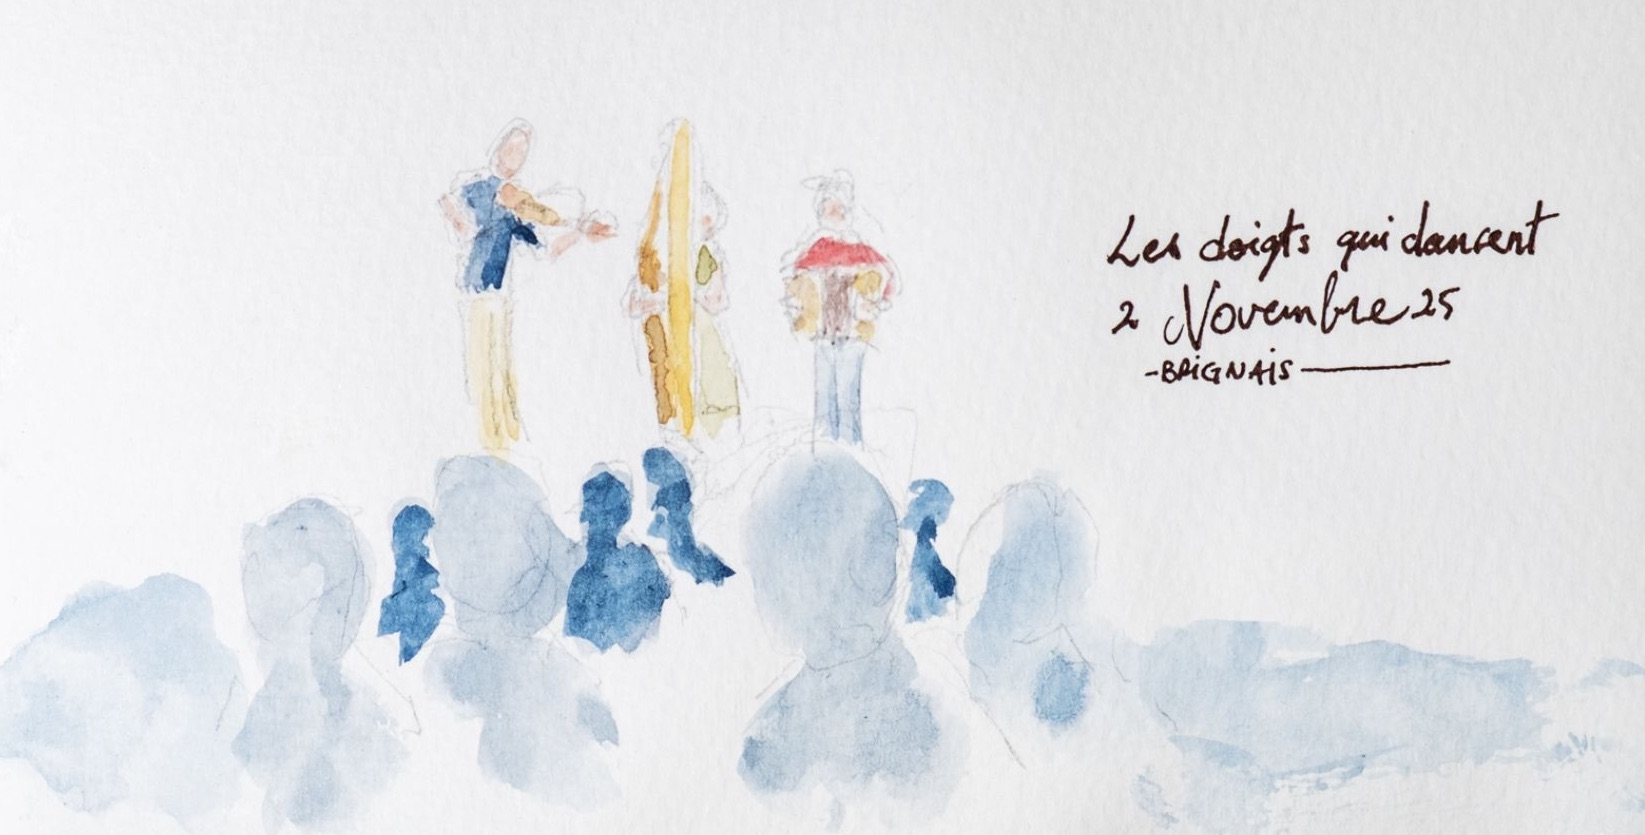 Les doigts qui dansent
2 Novembre 25
-BRIGNAIS-